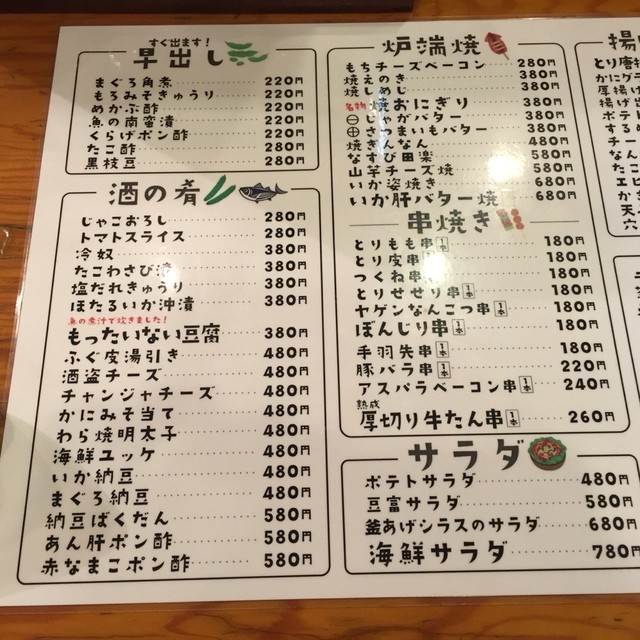 すぐ出ます！
早出し
まぐろ角煮 220円
もろみそきゅうり 220円
めかぶ酢 220円
魚の南蛮漬 220円
くらげポン酢 220円
たこ酢 280円
黒枝豆 280円
酒の肴
じゃこおろし 280円
トマトスライス 280円
冷奴 380円
たこわさび漬 380円
塩だれきゅうり 380円
ほたるいか沖漬 380円
魚の煮汁で炊きました！
もったいない豆腐 380円
ふぐ皮湯引き 480円
酒盗チーズ 480円
チャンジャチーズ 480円
かにみそ当て 480円
わら焼明太子 480円
海鮮ユッケ 480円
いか納豆 480円
まぐろ納豆 480円
納豆ばくだん 580円
あん肝ポン酢 580円
赤なまこポン酢 580円
炉端焼
もちチーズベーコン 280円
焼えのき 380円
焼しめじ 380円
名物 焼おにぎり 380円
㊀じゃがバター 380円
㊉さつまいもバター 380円
焼ぎんなん 480円
なすび田楽 580円
山芋チーズ焼 580円
いか姿焼き 680円
いか肝バター焼 680円
串焼き
とりもも串1本 180円
とり皮串1本 180円
つくね串1本 180円
とりせせり串1本 180円
ヤゲンなんこつ串1本 180円
ぼんじり串1本 180円
手羽先串1本 180円
豚バラ串1本 220円
アスパラベーコン串1本 240円
熟成
厚切り牛たん串1本 260円
サラダ
ポテトサラダ 480円
豆富サラダ 580円
釜あげシラスのサラダ 680円
海鮮サラダ 780円
揚
とり唐揚
かにク
厚揚げ
揚げ
ポテト
するﾒ
チー
なん
たこ
エビ
かき
天
穴